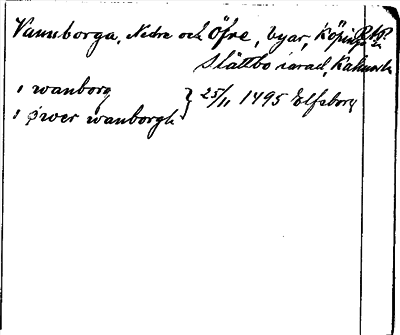 Vannborga, Nedre och Öfre, byar, Köpings
Slättbo härad, Kalmar l.
i wanborg
i øwer wanborgh } 25/11 1495 Elfsborg